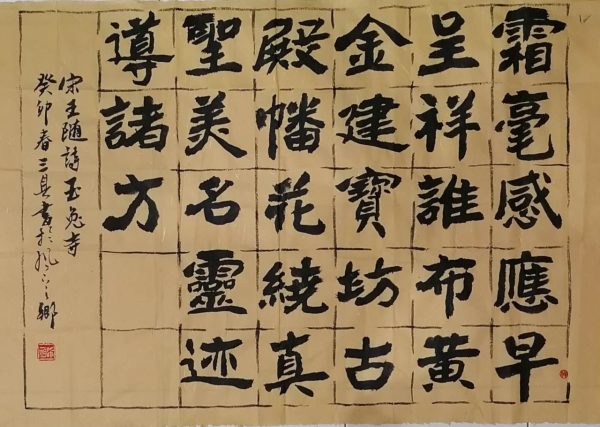 霜毫感應早
呈祥誰布黃
金建寶坊古
殿幡花繞真
聖美名靈迹
導諸方
宋王隨詩玉兔寺
癸卯春三書於之鄉